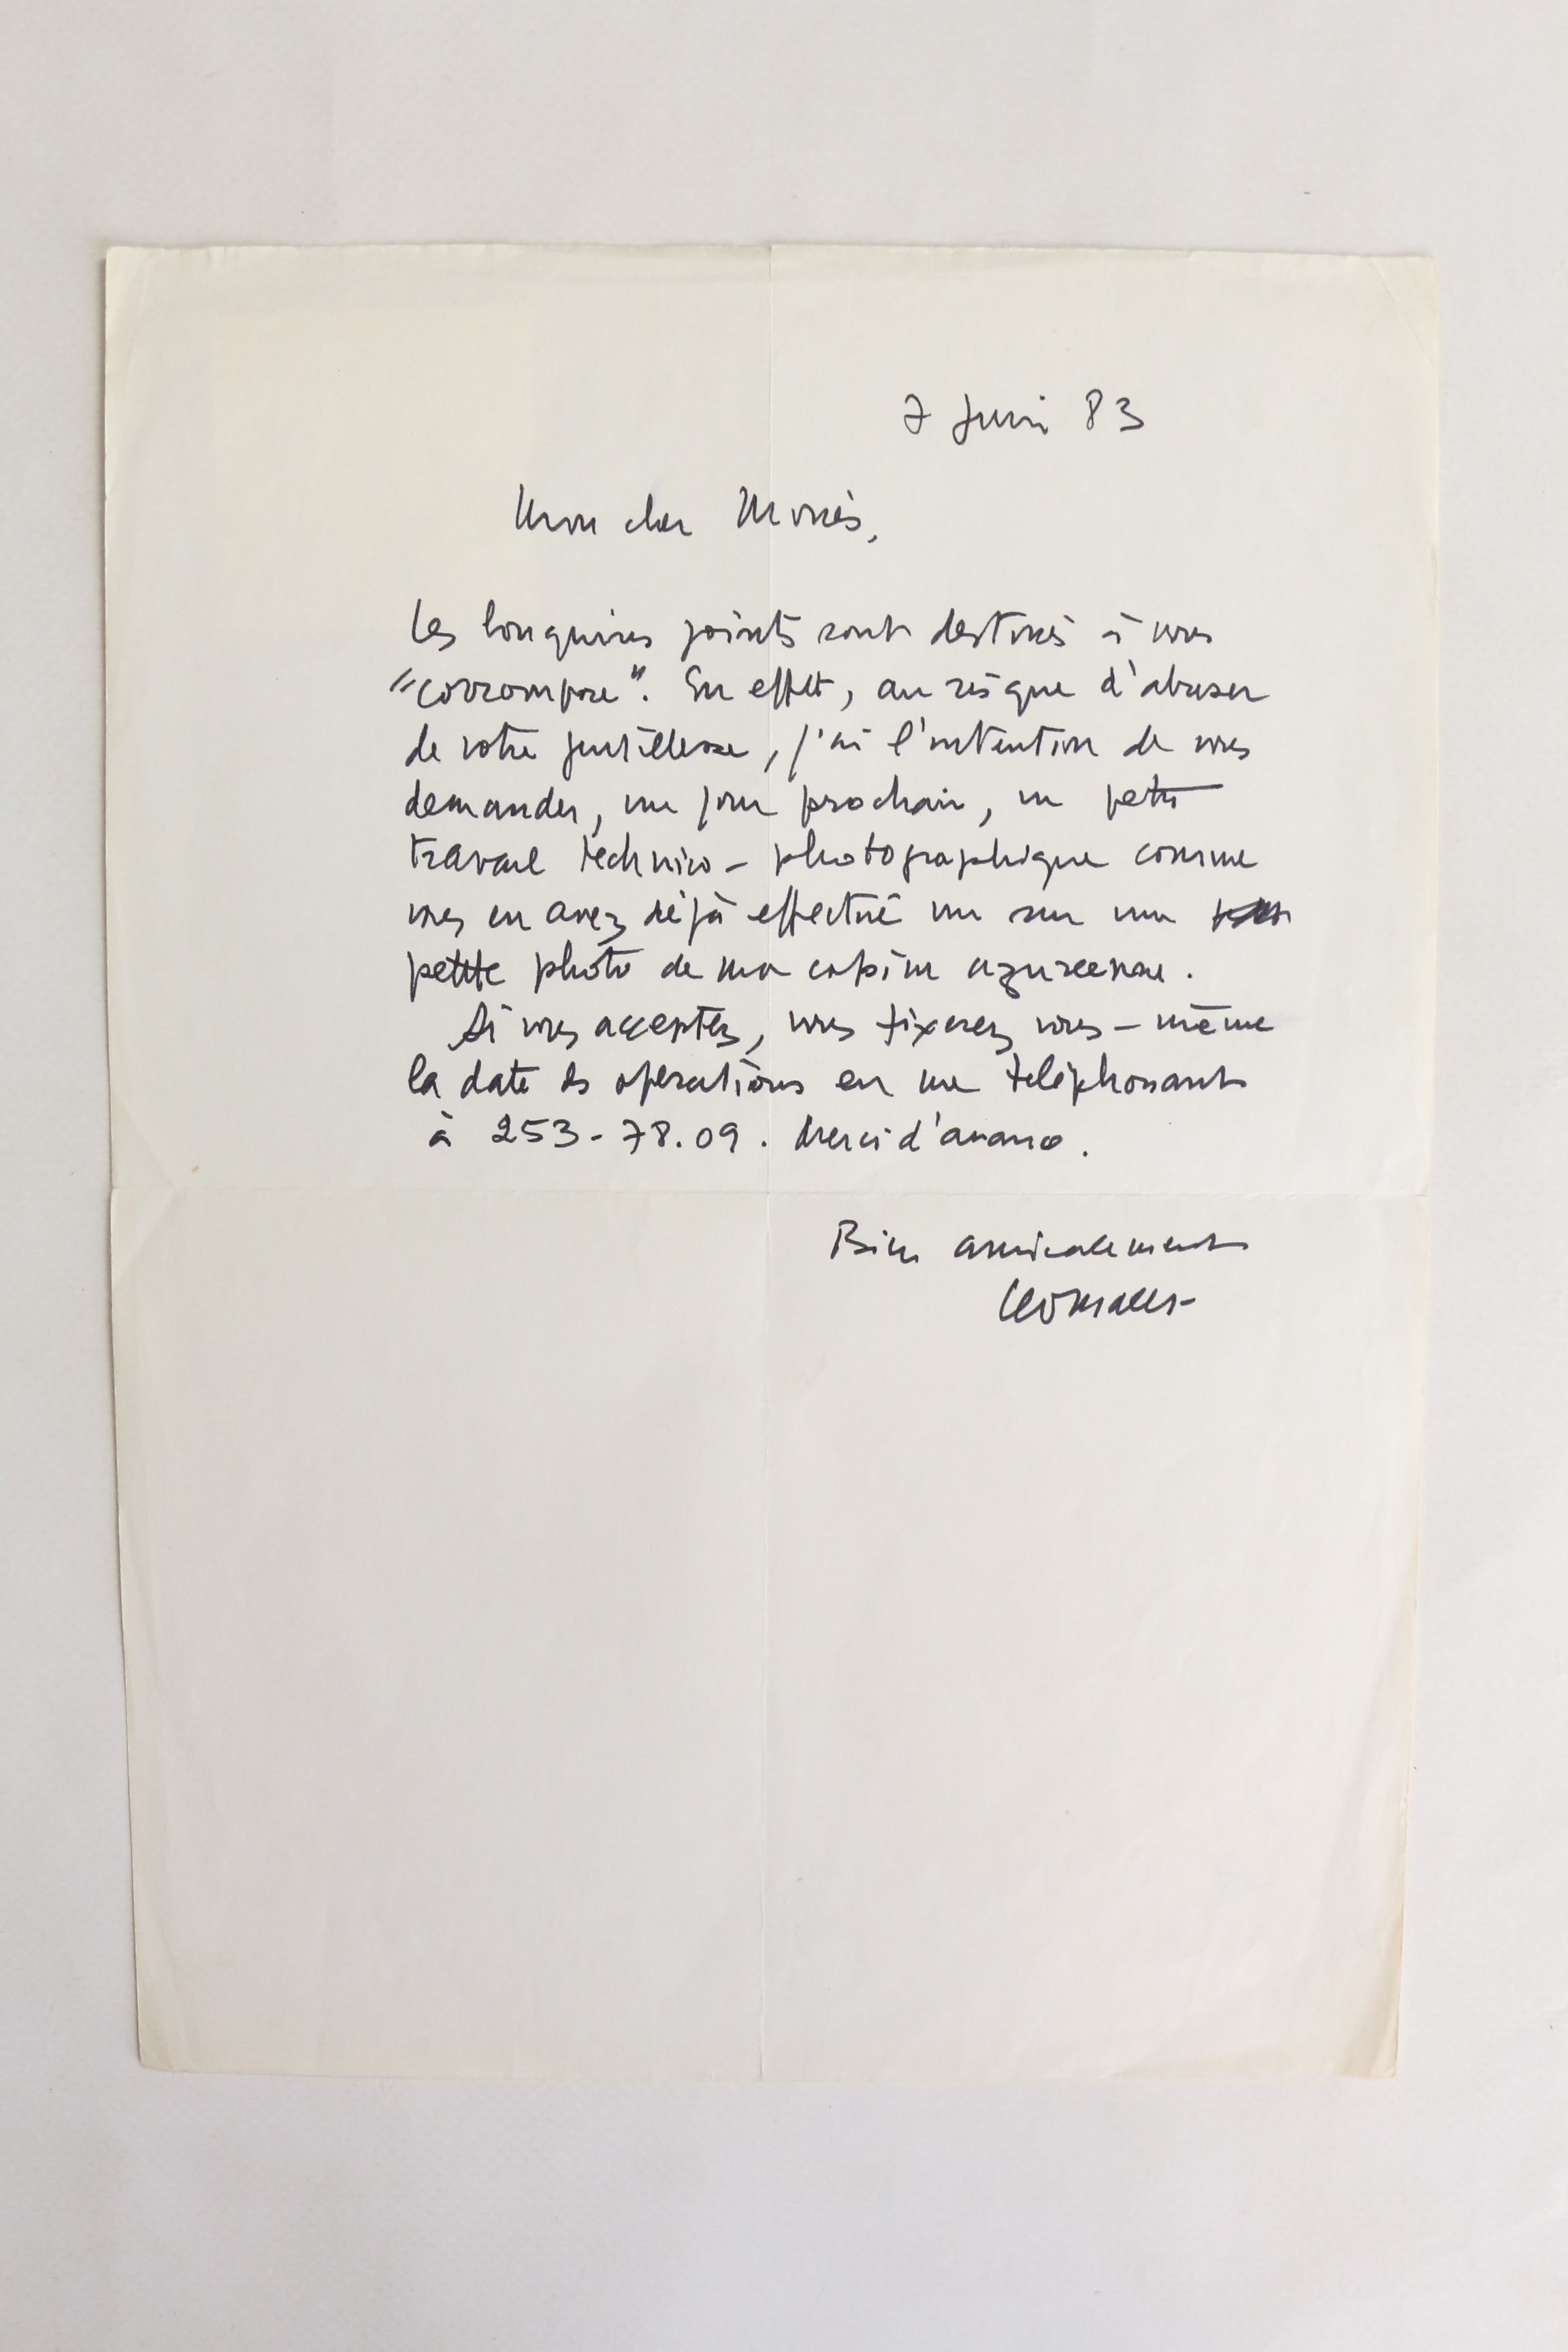 7 Juin 83
Mon cher Monès,
Les bouquins joints sont destinés à vous
"corrompre". En effet, au risque d'abuser
de votre gentillesse, j'ai l'intention de vous
demander, un jour prochain, un petit
travail technico-photographique comme
vous en avez déjà effectué un sur une
petite photo de ma copine azuréenne.
Si vous acceptez, vous fixerez vous-même
la date des opérations en me téléphonant
à 253-78.09. Merci d'avance.
Bien amicalement
Leo Malet